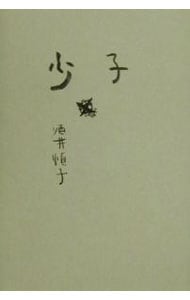 少子
酒井順子